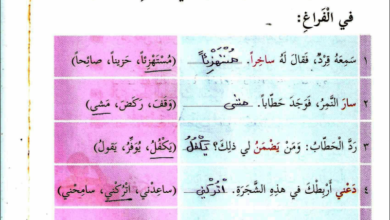 في الْفَراغِ:
١ سَمِعَهُ قِرْدٌ، فَقالَ لَهُ ساخِراً. مُسْتَهْزِئاً (مُسْتَهْزِئاً، حَزيناً، صائِحاً)
٢ سارَ النَّمِرُ، فَوَجَدَ حَطّاباً. مشى (وَقَفَ، رَكَضَ، مَشى)
٣ رَدَّ الْحَطّابُ: وَمَنْ يَضْمَنُ لي ذلِكَ؟ يَكْفُلُ (يَكْفُلُ، يُوَفِّرُ، يَقولُ)
٤ دَعْني أَرْبِطُكَ في هذِهِ الشَّجَرَةِ. اتْرُكْني (ساعِدْني، اتْرُكْني، سامِحْني)